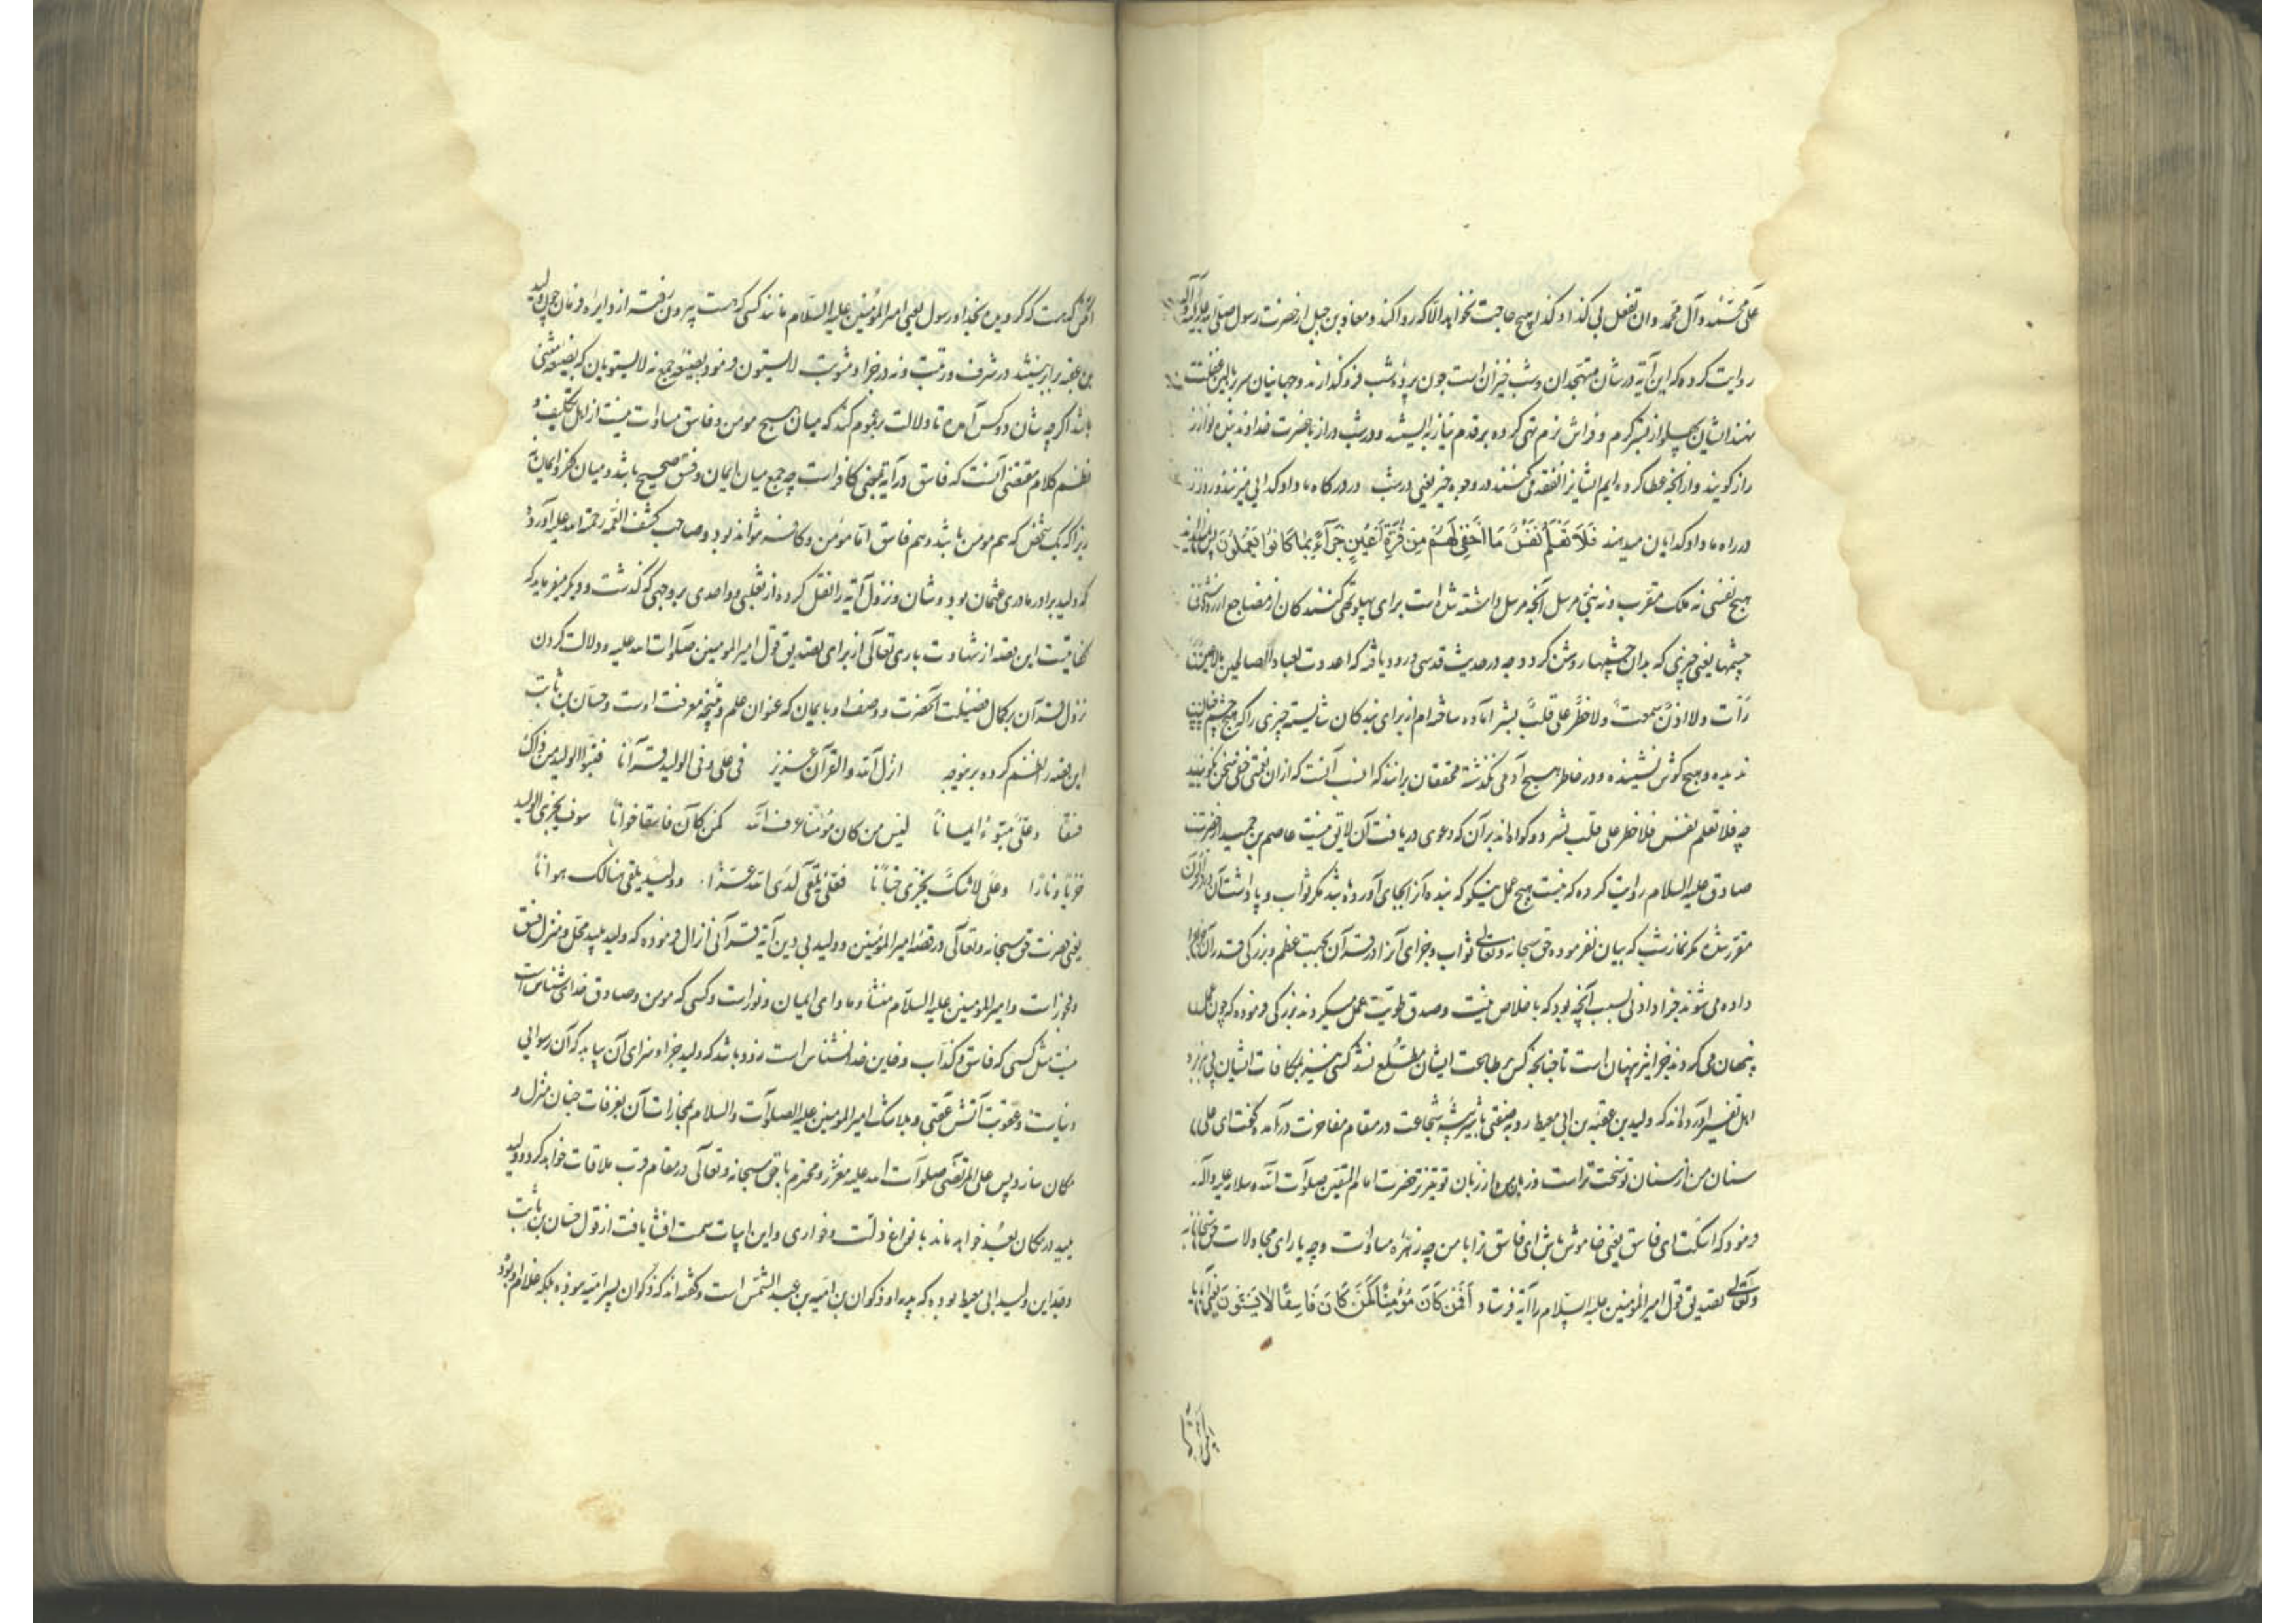 علی محمد و آل محمد و ان تفعل بی کذا و کذا هیچ حاجت نخواهد الا که روا کند و معاذ بن جبل از حضرت رسول صلی الله علیه و آله
روایت کرده که این آیه در شان متهجدان و شب خیزان است چون پرده شب فرو گذارند و جهانیان سر ببالین غفلت
نهند ایشان پهلو از بستر گرم و فراش نرم تهی کرده بر قدم نیاز بایستند و در شب دراز با حضرت خداوند بنده نواز
راز گویند و از آنچه عطا کرده ایم ایشانرا نفقه می کنند در وجوه خیر یعنی در شب در درگاه ما داد گدایی میزنند و روز
در راه ما داد گدایان میدهند فَلَا تَعْلَمُ نَفْسٌ مَا أُخْفِيَ لَهُمْ مِنْ قُرَّةِ أَعْيُنٍ جَزَآءً بِمَا كَانُوا يَعْمَلُونَ پس نداند
هیچ نفسی نه ملک مقرب و نه نبی مرسل آنچه داشته شده است برای پهلو تهی کنندگان از مضاجع از روشنی
چشمها یعنی چیزی که بدان چشمها روشن گردد چه در حدیث قدسی ورود یافته که اعددت لعبادی الصالحین ما لا عین
رأت و لا اذن سمعت و لا خطر علی قلب بشر آماده ساخته ام از برای بندگان شایسته چیزی را که هیچ چشم
ندیده و هیچ گوش نشنیده و در خاطر هیچ آدمی نگذشته محققان برانند که انسب آنست که ازان نعمتی خفی سخن نگویند
چه فلا تعلم نفس فلا خطر علی قلب بشر دو گواه اند بر آن که دعوی دریافت آن لایق نیست عاصم بن حمید از حضرت
صادق علیه السلام روایت کرده که نیست هیچ عمل نیکو که بنده آنرا بجای آورده باشد مگر ثواب و پاداشت آن در قرآن
مقرر شده مگر نماز شب که بیان نفرموده حق سبحانه و تعالی ثواب و جزای آنرا در قرآن بجهت عظم و بزرگی قدر آن
داده می شوند جزا دادنی بسبب آنچه بود که باخلاص نیت و صدق طویت عمل میکردند بزرگی فرموده که چون عمل
پنهان می کردند جزا نیز پنهان است تا چنانچه کسی بر طاعت ایشان مطلع نشد کسی نیز بمکافات ایشان پی نبرد
اهل تفسیر آورده اند که ولید بن عقبه بن ابی معیط روبه صفتی با شیر بیشه شجاعت در مقام مفاخرت درآمده گفت ای علی
سنان من از سنان تو سخت تر است و زبان من از زبان تو تیزتر حضرت امام المتقین صلوات الله و سلامه علیه و آله
فرمود که اسکت ای فاسق یعنی خاموش باش ای فاسق ترا با من چه زهره مساوات و چه یارای مجادلات حق سبحانه
و تعالی تصدیق قول امیر المؤمنین علیه السلام را آیه فرستاد أَفَمَنْ كَانَ مُؤْمِنًا كَمَنْ كَانَ فَاسِقًا لَا يَسْتَوُونَ یعنی آیا
آنکس که هست که گرویده بخدا و رسول یعنی امیر المؤمنین علیه السلام مانند کسی که هست بیرون رفته از دایره فرمان چون ولید
بن عقبه برابر نیستند در شرف و رتبت و نه در جزا و مثوبت لا یستوون فرمود بصیغه جمع نه لا یستویان که بصیغه مثنی
باشد اگرچه شان دو کس آمده تا دلالت بر عموم کند که میان هیچ مومن و فاسق مساوات نیست از اهل تکلیف و
نظم کلام مقتضی آنست که فاسق در آیه بمعنی کافر است چه جمع میان ایمان و فسق صحیح باشد و میان کفر و ایمان نه
زیرا که یک شخص که هم مومن باشد و هم فاسق اما مؤمن و کافر نتواند بود و صاحب کشف الغمه رحمة الله علیه آورده
که ولید برادر مادری عثمان بود و شان نزول آیه را نقل کرده از ثعلبی و واحدی بر وجهی که گذشت و دیگر میفرماید که
کفایت این قصه از شهادت باری تعالی از برای تصدیق قول امیر المومنین صلوات الله علیه و دلالت کردن
نزول قرآن بر کمال فضیلت آنحضرت و وصف او بایمان که عنوان علم و نتیجه معرفت اوست و حسان بن ثابت
این قصه را نظم کرده برینوجه انزل الله و القرآن عزیز فی علی و فی الولید قرآنا فتبوأ الولید من ذاک
فسقا و علی مبوء ایمانا لیس من کان مؤمنا عرف الله کمن کان فاسقا خوانا سوف یجزی الولید
خزیا و نارا و علی لا شک یجزی جنانا فعلی یلقی لدی الله عزا و ولید یلقی هنالک هوانا
یعنی حضرت حق سبحانه و تعالی در قصه امیر المؤمنین و ولید بی دین آیه قرآنی انزال فرموده که ولید پلید محل و منزل فسق
و فجور است و امیر المومنین علیه السلام منشأ و ماوای ایمان و نور است و کسی که مومن و صادق خدای شناس است
نیست مثل کسی که فاسق و کذاب و خاین خدا نشناس است زود باشد که ولید جزا و سزای آن بیابد که آن رسوایی
دنیاست و عقوبت آتش عقبی و بلاشک امیر المومنین علیه الصلوات و السلام بمجازات آن بغرفات جنان منزل و
مکان سازد پس علی المرتضی صلوات الله علیه معزز و محترم با حق سبحانه و تعالی در مقام قرب ملاقات خواهد کرد و ولید
پلید در مکان بعید خواهد ماند با نواع ذلت و خواری و این ابیات سمت افشا یافت از قول حسان بن ثابت
و جد این ولید ابی معیط بوده که پدر او ذکوان بن امیه بن عبد الشمس است و گفته اند که ذکوان پسر امیه نبوده بلکه غلام او بود